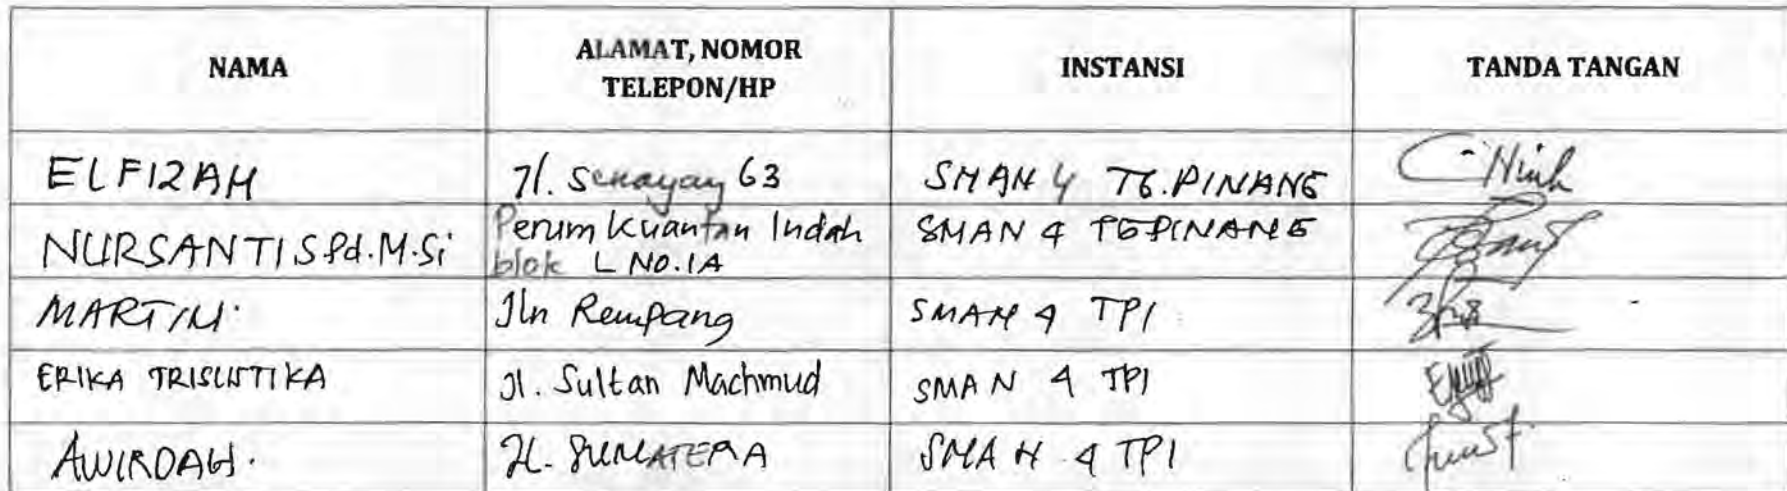 NAMA
ALAMAT, NOMOR
TELEPON/HP
INSTANSI
TANDA TANGAN
ELFIZAH
Jl. Senayang 63
SMAN 4 TG.PINANG
NURSANTI S.Pd.M.Si
Perum Kuantan Indah
blok L NO.1A
SMAN 4 TGPINANG
MARTINI
Jln Rempang
SMAN 4 TPI
ERIKA TRISUSTIKA
Jl. Sultan Machmud
SMAN 4 TPI
AWIRDAH.
JL. SUMATERA
SMAN 4 TPI